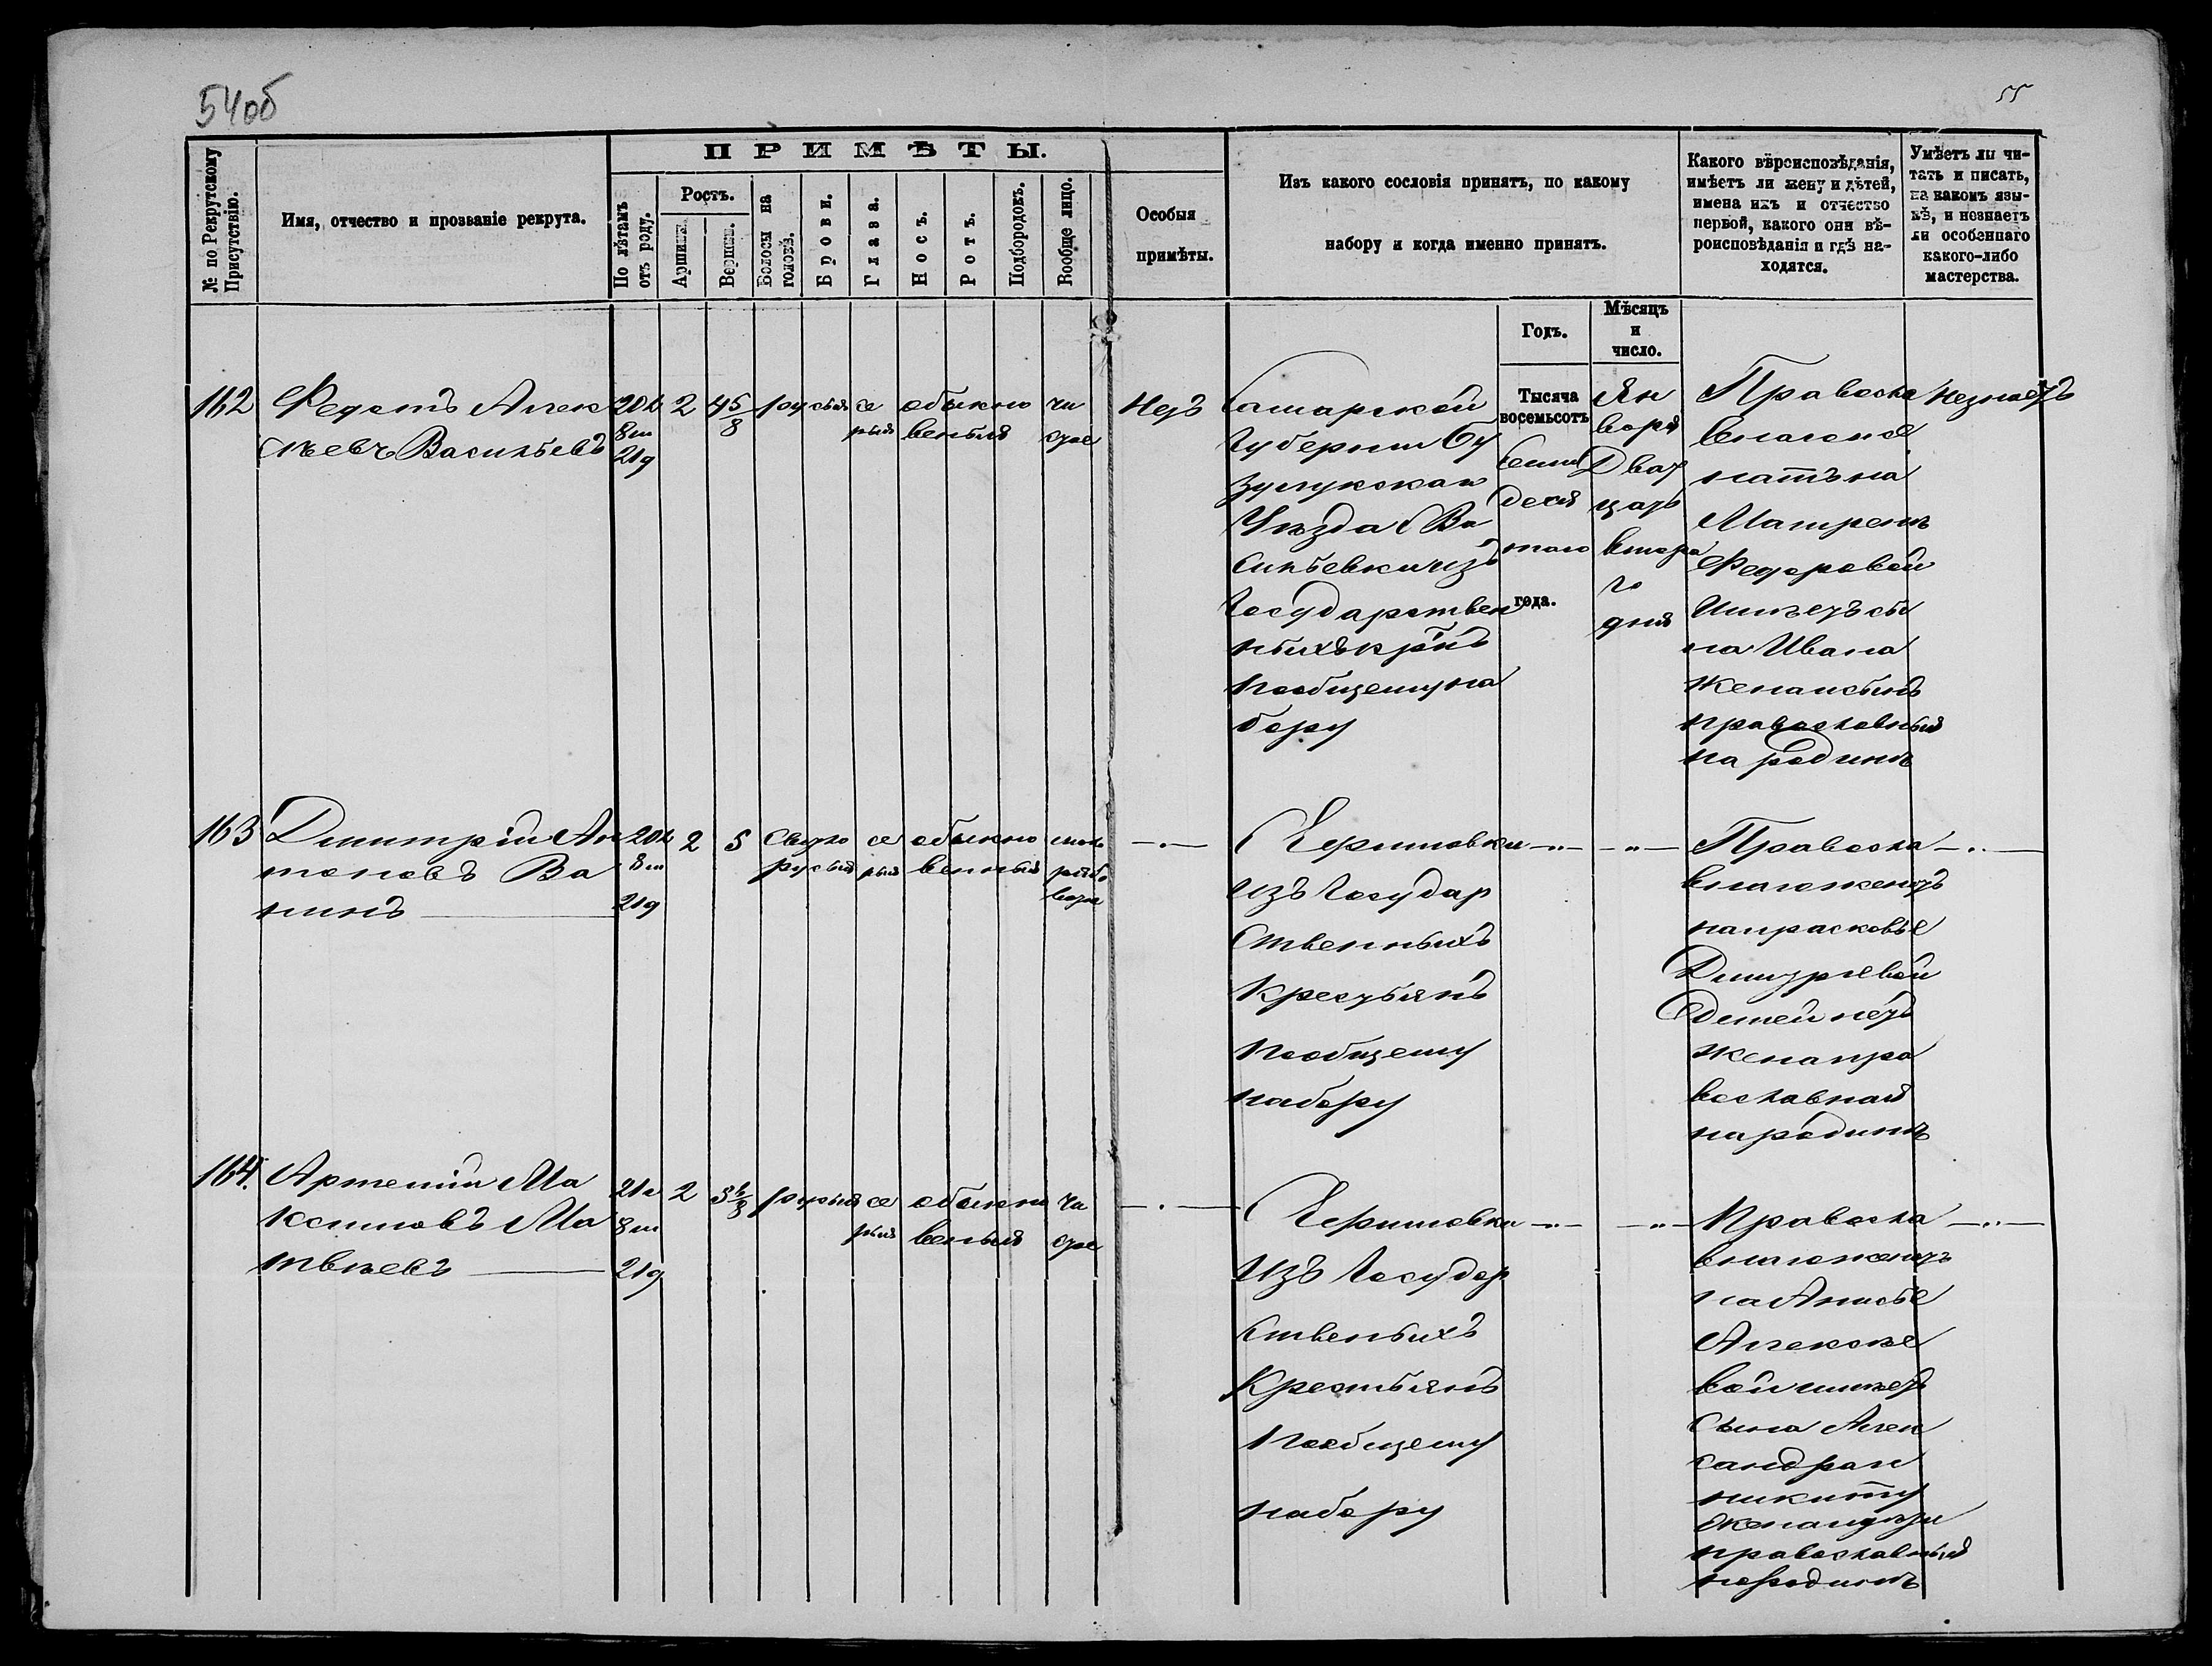 54об
55
№ по Рекрутскому Присутствію.
Имя, отчество и прозваніе рекрута.
ПРИМѢТЫ.
По лѣтамъ отъ роду.
Ростъ.
Аршинъ.
Вершк.
Волосы на головѣ.
Брови.
Глаза.
Носъ.
Ротъ.
Подбородокъ.
Вообще лицо.
Особыя
примѣты.
Изъ какого сословія принятъ, по какому
набору и когда именно принятъ.
Какого вѣроисповѣданія,
имѣетъ ли жену и дѣтей,
имена ихъ и отчество
первой, какого они вѣ-
роисповѣданія и гдѣ на-
ходятся.
Умѣетъ ли чи-
тать и писать,
на какомъ язы-
кѣ, и незнаетъ
ли особеннаго
какого-либо
мастерства.
Годъ.
Мѣсяцъ
и
число.
162
Федотъ Алек
сѣевъ Васильевъ
20л
8м
21д
2
4 5/8
русыя
се
рыя
обыкно
веныя
чи
стое
Нетъ
Самарской
Губернии Бу
зулукскаго
Уѣзда Ва
сильевки изъ
Государствен
ныхъ крнъ
по общему на
бору
Тысяча
восемьсотъ
семи
деся
таго
года.
Ян
варя
Двад
цать
втора
го
дня
Правосла
внаго же
натъ на
Матренѣ
Федоровой
Имѣетъ сы
на Ивана
жена и сынъ
православныя
на родинѣ
Незнаетъ
163
Димитрій Ан
тоновъ Ва
нинъ
20л
8м
21д
2
5
Светло
русыя
се
рыя
обыкно
венныя
рябо
—.—
Герасимовки
изъ Государ
ственныхъ
Крестьянъ
по общему
набору
—..—
—..—
Правосла
внаго женатъ
на прасковье
Димитриевой
детей нетъ
жена пра
вославная
на родинѣ
—..—
164.
Артемий Ма
ксимовъ Ма
твѣевъ
21л
8м
21д
2
русыя
се
рыя
обыкно
веныя
чи
стое
—.—
Герасимовки
изъ Государ
ственыхъ
Крестьянъ
по общему
набору
—..—
—..—
Правосла
внаго женатъ
на Анисье
Алексѣе
вой имѣетъ
сына Алек
сандра и
никиту
жена и дѣти
православныя
на родинѣ
—..—